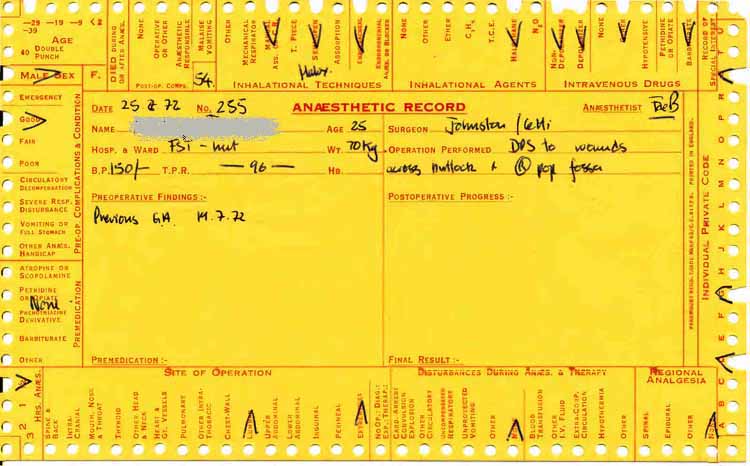 -29 -19 -9 <2
-39
AGE
40 DOUBLE
PUNCH
MALE SEX F.
DIED DURING
OR AFTER ANÆS.
NONE
OPERATIVE
OR OTHER
ANÆSTHETIC
RESPONSIBLE
MALAISE
VOMITING
OTHER
POST-OP. COMPS.
54.
MECHANICAL
RESPIRATOR
ASS.
T. PIECE
ABSORPTION
ENDOBRONCHIAL
ANÆS. OR BLOCKER
INHALATIONAL TECHNIQUES
NONE
OTHER
ETHER
C3H6
T.C.E.
N2O
INHALATIONAL AGENTS
NONE
HYPOTENSIVE
PETHIDINE
OR OPIATE
INTRAVENOUS DRUGS
RECORD OF
SPECIAL INTEREST
EMERGENCY
GOOD
FAIR
POOR
CIRCULATORY
DECOMPENSATION
SEVERE RESP.
DISTURBANCE
VOMITING OR
FULL STOMACH
OTHER ANÆS.
HANDICAP
PRE-OP. COMPLICATIONS & CONDITION
ATROPINE OR
SCOPOLAMINE
PETHIDINE
OR OPIATE
None
PHENOTHIAZINE
DERIVATIVE
BARBITURATE
OTHER
PREMEDICATION
DATE 25 7 72 NO. 255 ANÆSTHETIC RECORD ANÆSTHETIST
NAME AGE 25 SURGEON Johnston /
HOSP. & WARD FST - nut WT. 70kg OPERATION PERFORMED DPS to wounds
B.P. 150/- T.P.R. — 96 — HB. across buttock + (R) pop fossa
PREOPERATIVE FINDINGS :- POSTOPERATIVE PROGRESS :-
Previous GA 19.7.72
PREMEDICATION :- FINAL RESULT :-
PRINTED IN ENGLAND.
INDIVIDUAL PRIVATE CODE
A B C D E F G H J K L M N O P R
SITE OF OPERATION DISTURBANCES DURING ANÆS. & THERAPY REGIONAL
ANALGESIA
3 2 1
HRS. ANÆS.
SPINE &
BACK
INTRA-
CRANIAL
MOUTH, NOSE
& THROAT
THYROID
OTHER HEAD
& NECK
HEART &
GT. VESSELS
PULMONARY
OTHER INTRA-
THORACIC
CHEST-WALL
UPPER
ABDOMINAL
LOWER
ABDOMINAL
INGUINAL
PERINEAL
NO OP.: DIAG.:
EXP.: THERAP.:
CARD. ARREST
CONVULSION
EXPLOSION
OTHER
CIRCULATORY
UNCOMPENSATED
RESPIRATORY
UNPROVOKED
VOMITING
OTHER
BLOOD
TRANSFUSION
OTHER
I.V. FLUID
EXTRA-CORP.
CIRCULATION
HYPOTHERMIA
OTHER
SPINAL
EPIDURAL
OTHER
NONE